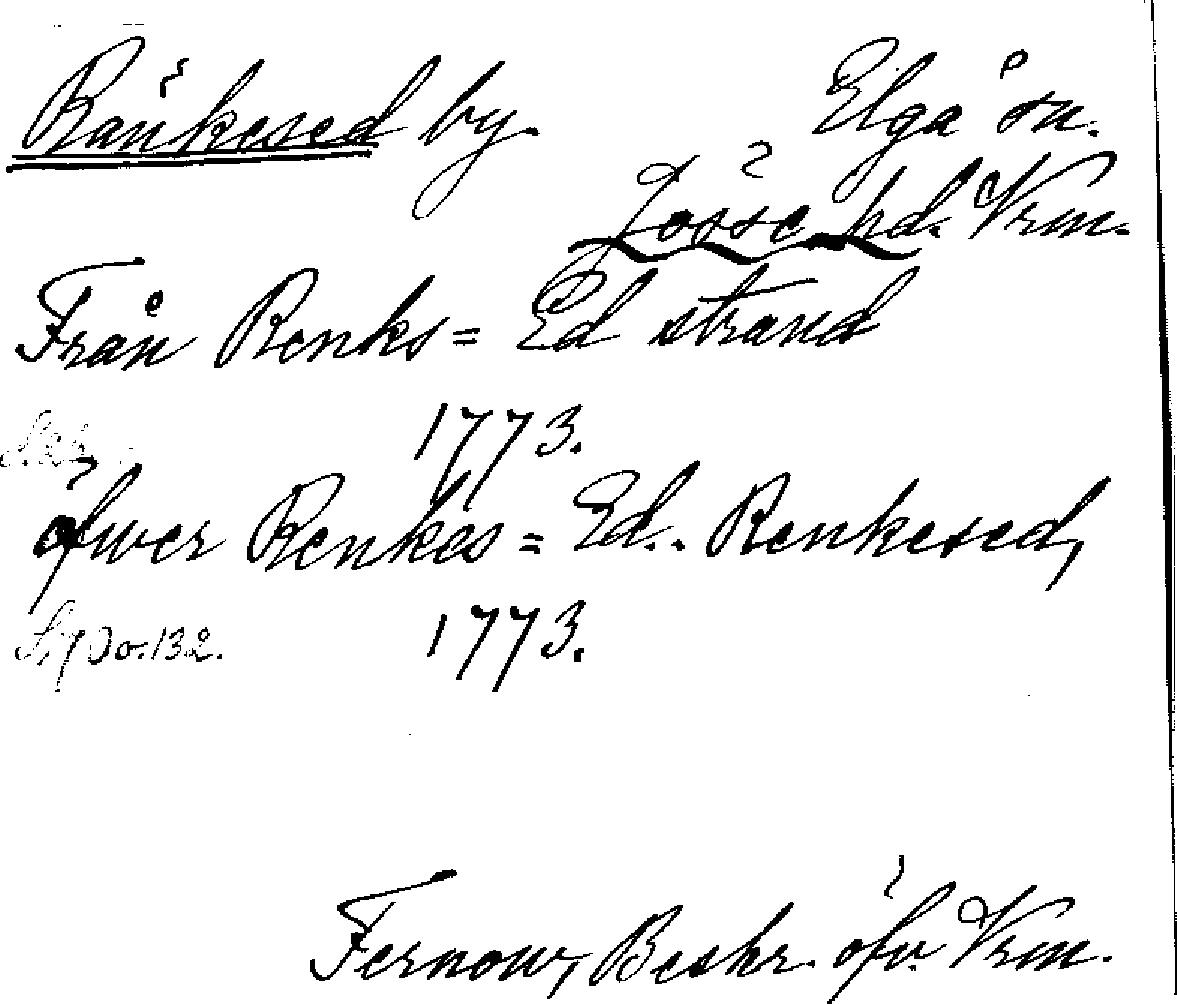 Ränkesed by. Elgå sn.
Jösse hd. Vrm.
Från Renks= Ed strand
1773.
öfwer Renkes= Ed. Renkesed,
S, 730.132. 1773.
Fernow, Beskr. öfv. Vrm.